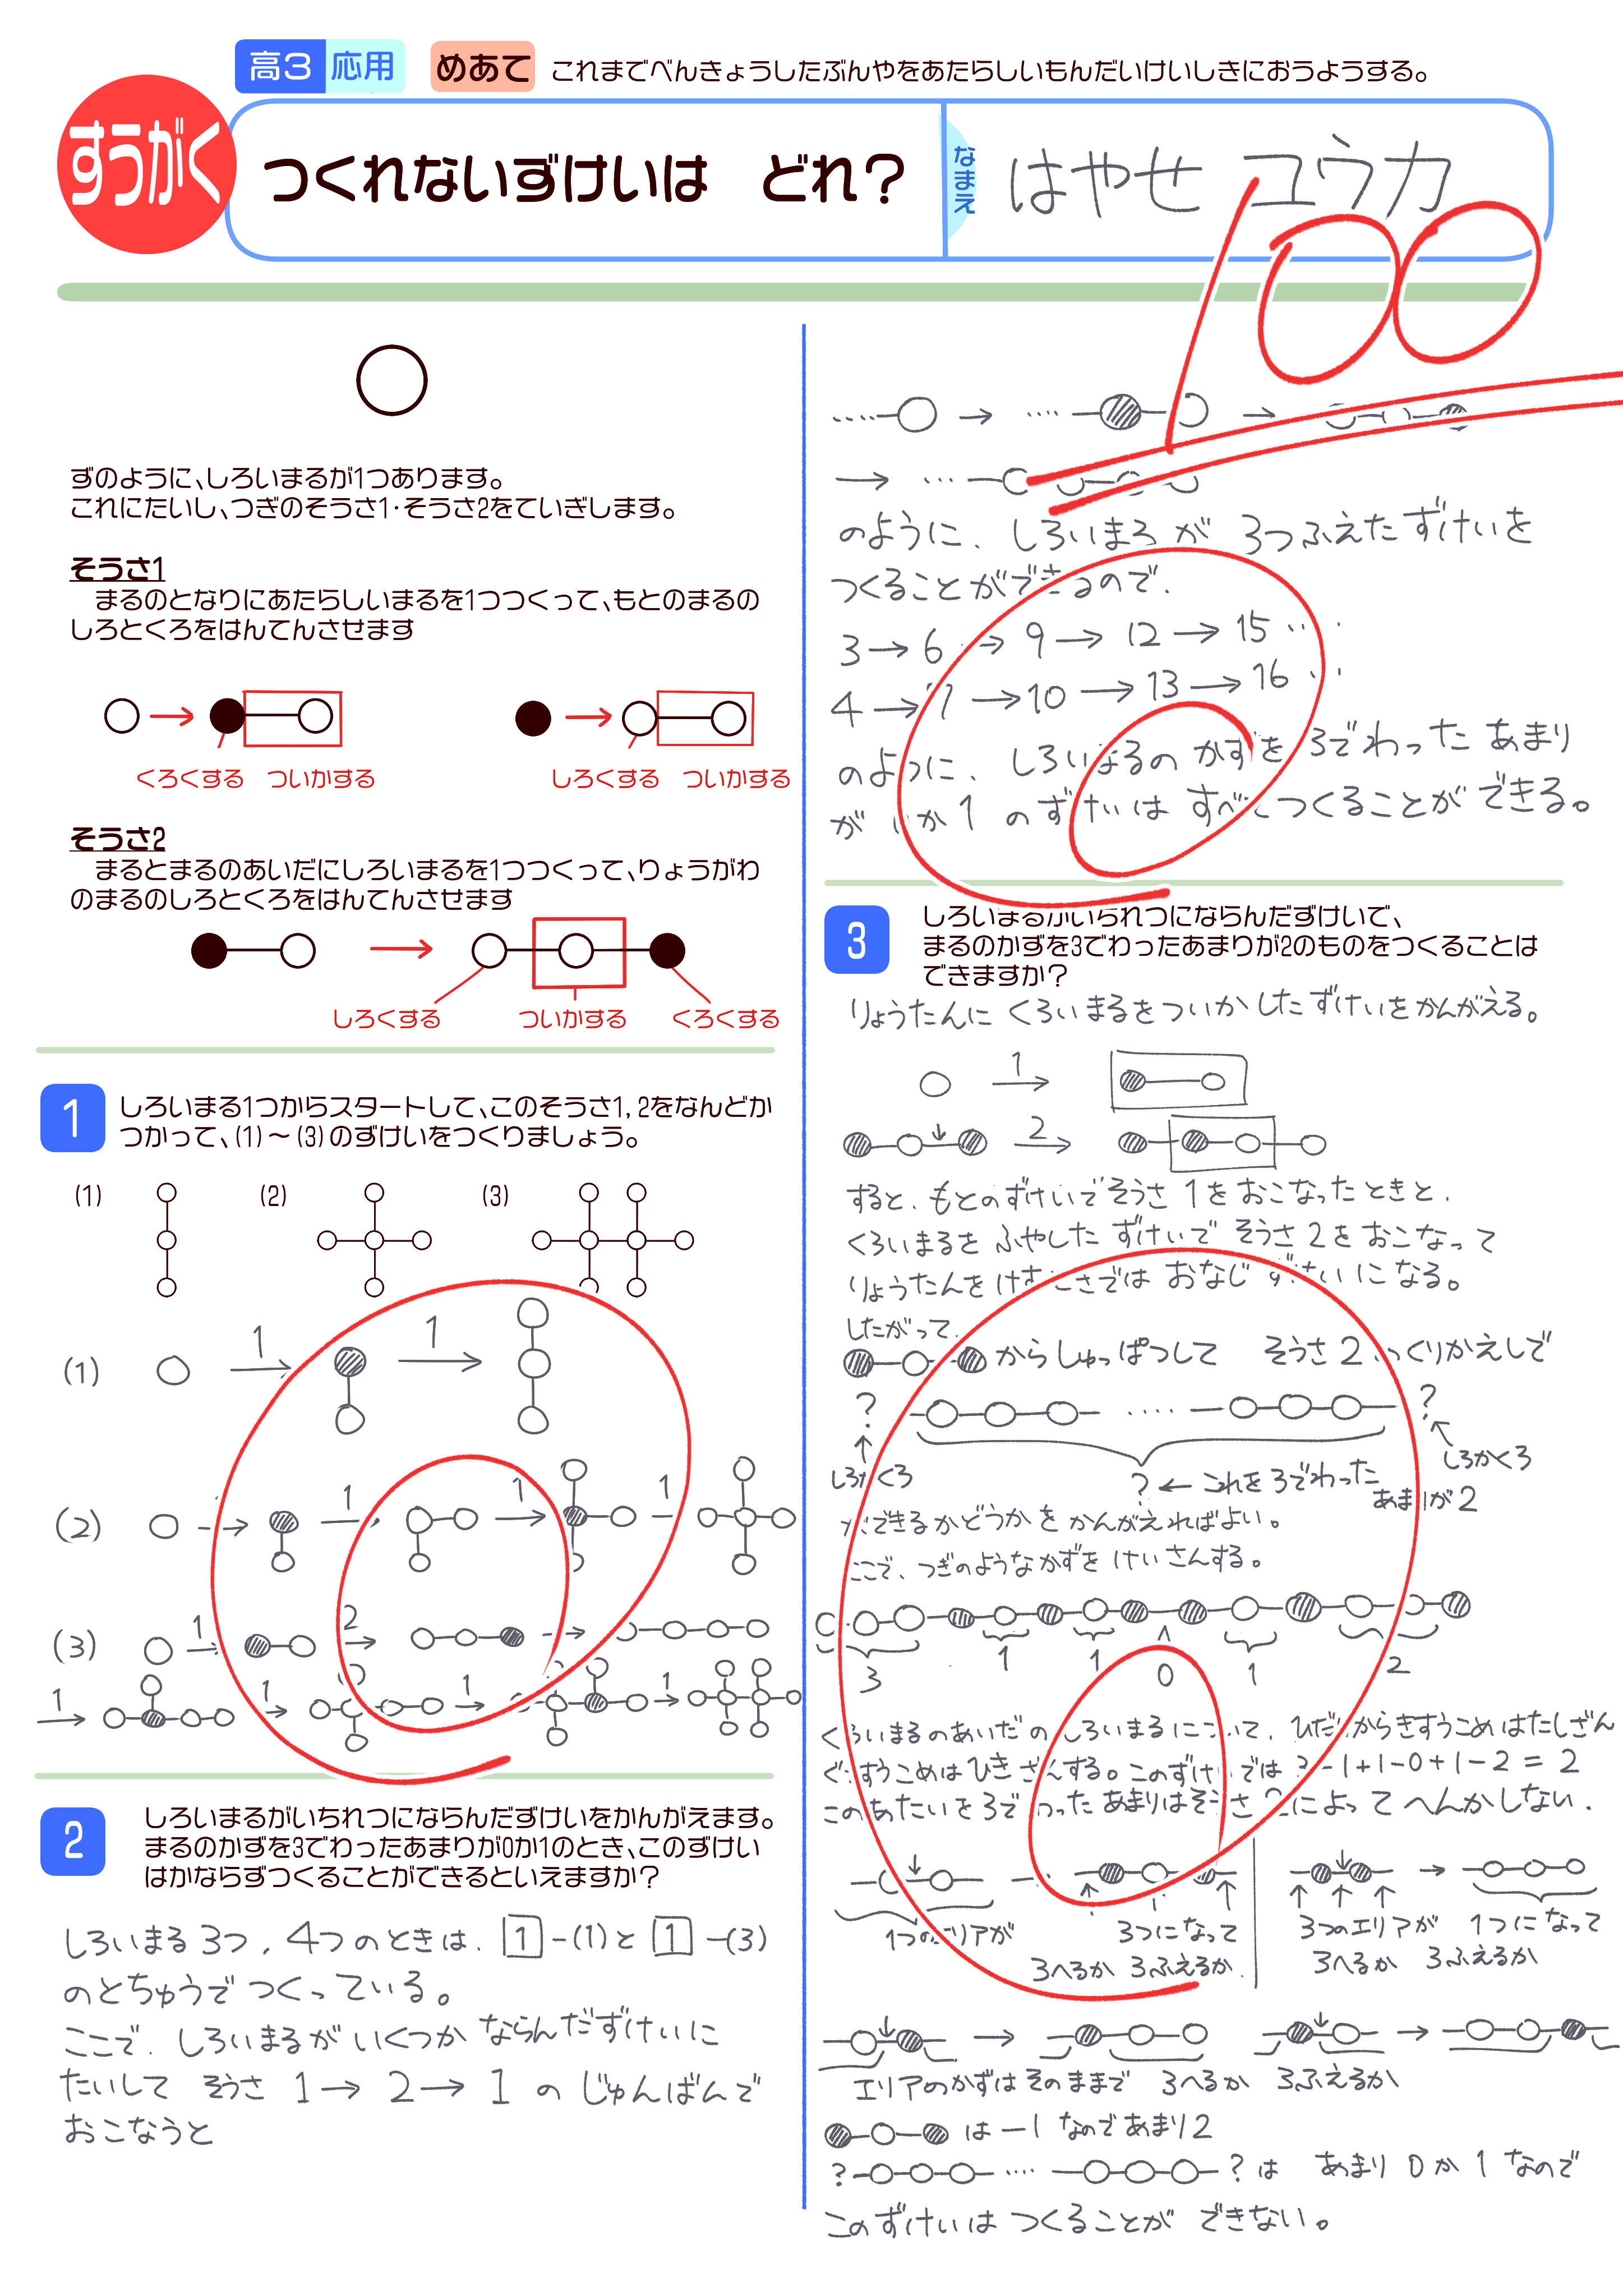 高3 応用 めあて これまでべんきょうしたぶんやをあたらしいもんだいけいしきにおうようする。
すうがく
つくれないずけいは どれ？
なまえ
はやせ ユウカ
100
ずのように、しろいまるが1つあります。
これにたいし、つぎのそうさ1・そうさ2をていぎします。
そうさ1
まるのとなりにあたらしいまるを1つつくって、もとのまるの
しろとくろをはんてんさせます
くろくする ついかする
しろくする ついかする
そうさ2
まるとまるのあいだにしろいまるを1つつくって、りょうがわ
のまるのしろとくろをはんてんさせます
しろくする ついかする くろくする
1
しろいまる1つからスタートして、このそうさ1, 2をなんどか
つかって、(1)～(3)のずけいをつくりましょう。
(1) (2) (3)
(1) 1 1
(2) 1 1 1
(3) 1 2
1 1 1 1
2
しろいまるがいちれつにならんだずけいをかんがえます。
まるのかずを3でわったあまりが0か1のとき、このずけい
はかならずつくることができるといえますか？
しろいまる 3つ, 4つのときは, 1-(1)と 1-(3)
のとちゅうで つくっている。
ここで, しろいまるが いくつか ならんだずけいに
たいして そうさ 1→2→1 の じゅんばんで
おこなうと
のように、しろいまるが 3つふえたずけいを
つくることができるので,
3→6→9→12→15…
4→7→10→13→16…
のように、しろいまるの かずを 3でわった あまり
が 0か1 のずけいは すべてつくることができる。
3
しろいまるがいちれつにならんだずけいで、
まるのかずを3でわったあまりが2のものをつくることは
できますか？
りょうたんに くろいまるをついかしたずけいをかんがえる。
1
2
すると, もとのずけいでそうさ1をおこなったときと,
くろいまるを ふやした ずけいで そうさ2をおこなって
りょうたんをけすことでは おなじ ずけいになる。
したがって,
からしゅっぱつして そうさ2のくりかえしで
? ?
しろかくろ ?←これを3でわった しろかくろ
あまりが2
ができるかどうかを かんがえればよい。
ここで、つぎのようなかずを けいさんする。
3 1 1 0 1 2
くろいまるのあいだの しろいまるについて, ひだりからきすうこめはたしざん
ぐうすうこめはひきざんする。このずけいでは 3-1+1-0+1-2=2
このあたいを3で わった あまりはそうさ2によって へんかしない.
1つのエリアが 3つになって
3へるか 3ふえるか.
3つのエリアが 1つになって
3へるか 3ふえるか
エリアのかずはそのままで 3へるか 3ふえるか
は -1 なのであまり2
? … ? は あまり 0か1 なので
このずけいは つくることが できない。